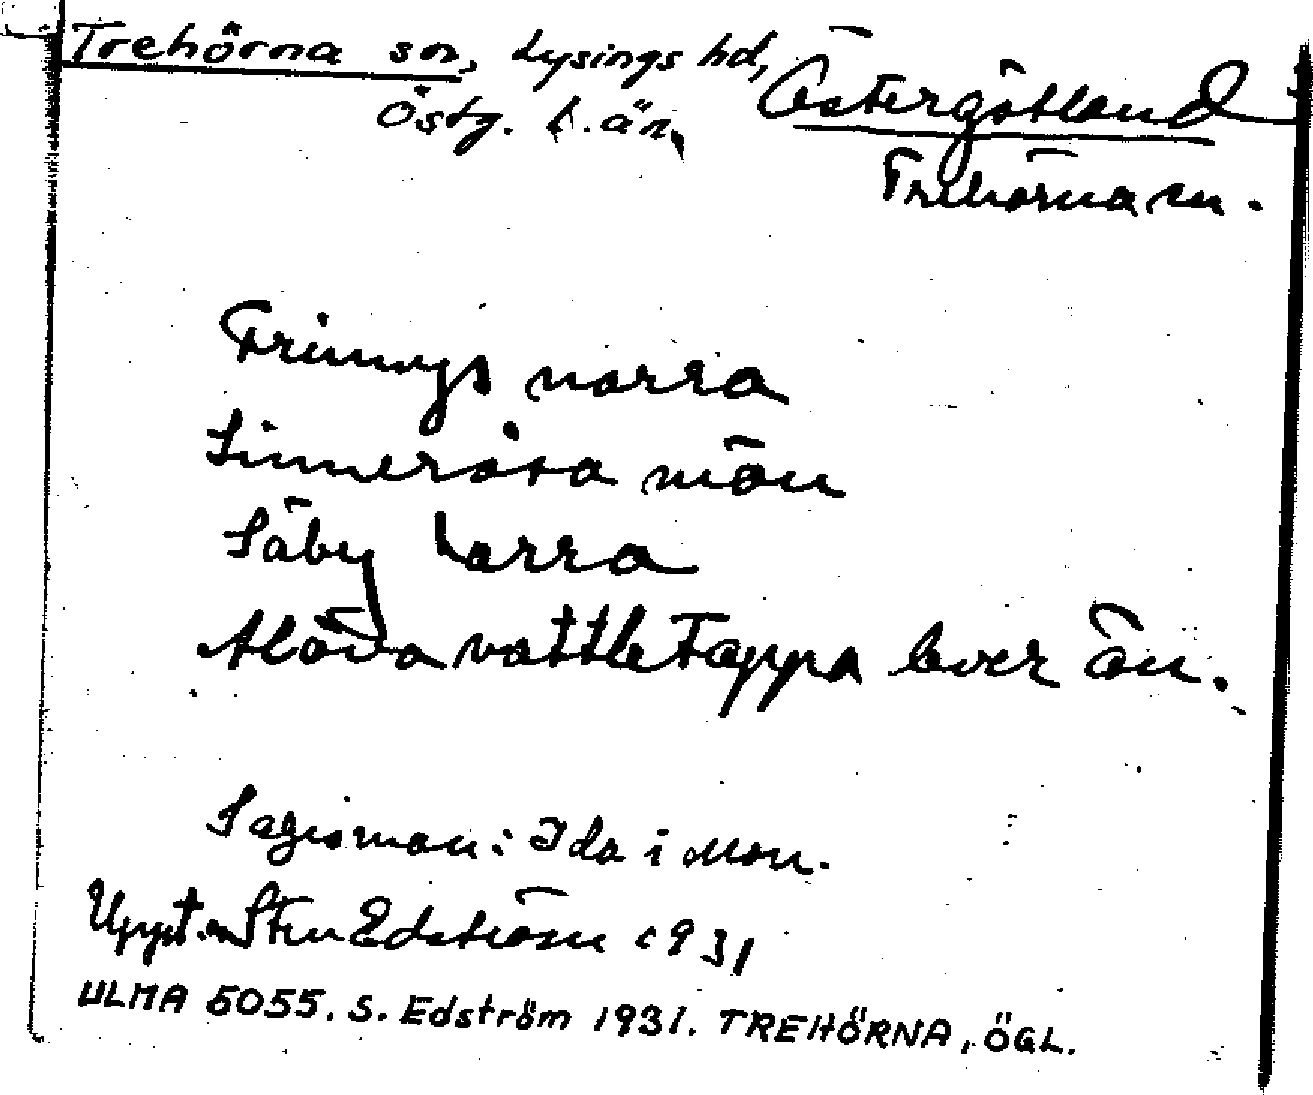 Trehörna sn, Lysings hd,
Östg. län,
Östergötland
Trehörna sn.
norra
mön
Säby norra
över ön.
Sagesman: Ida i Mon.
Uppt. av Sten Edström 1931
ULMA 5055. S. Edström 1931. TREHÖRNA, ÖGL.